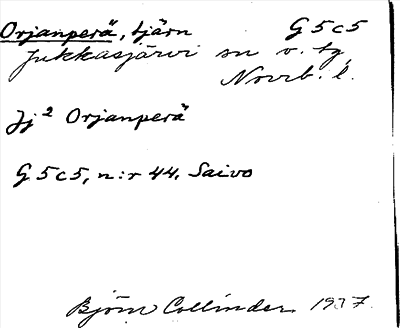 Orjanperä, tjärn G5c5
Jukkasjärvi sn v. tg,
Norrb. l.
Jj² Orjanperä
G5c5, n:r 44. Saivo
Björn Collinder 1937.